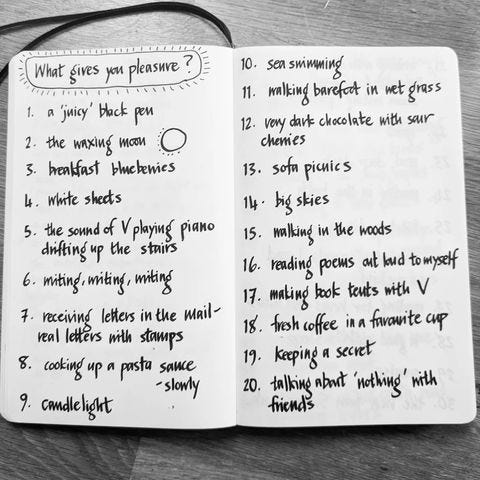 What gives you pleasure?
1. a 'juicy' black pen
2. the waxing moon
3. breakfast blueberries
4. white sheets
5. the sound of V playing piano
drifting up the stairs
6. writing, writing, writing
7. receiving letters in the mail-
real letters with stamps
8. cooking up a pasta sauce
- slowly
9. candlelight
10. sea swimming
11. walking barefoot in wet grass
12. very dark chocolate with sour
cherries
13. sofa picnics
14. big skies
15. walking in the woods
16. reading poems out loud to myself
17. making book tents with V
18. fresh coffee in a favourite cup
19. keeping a secret
20. talking about 'nothing' with
friends